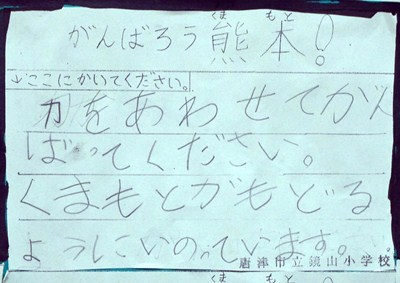 がんばろう熊本!
↓ここにかいてください。
力をあわせてがん
ばってください。
くまもとがもどる
ようにいのっています。
唐津市立鏡山小学校
くま もと